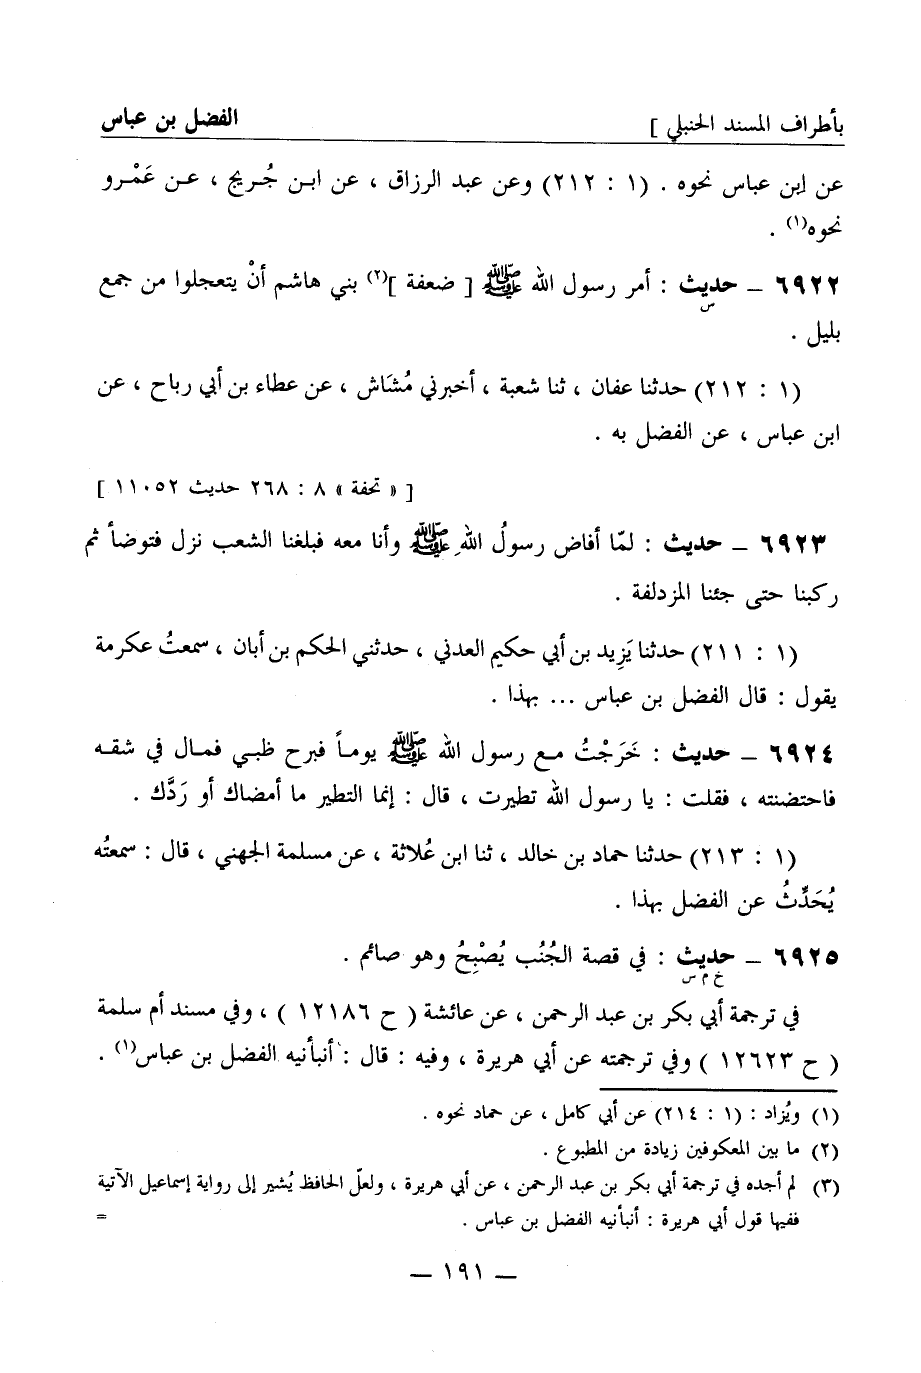 بأطراف المسند الحنبلي ] الفضل بن عباس
عن ابن عباس نحوه . (١ : ٢١٢) وعن عبد الرزاق ، عن ابن جُريج ، عن عَمْرو
نحوه(١) .
٦٩٢٢ ـ حديث : أمر رسول الله ﷺ [ ضعفة ](٢) بني هاشم أنْ يتعجلوا من جمع
س
بليل .
(١ : ٢١٢) حدثنا عفان ، ثنا شعبة ، أخبرني مُشَاش ، عن عطاء بن أبي رباح ، عن
ابن عباس ، عن الفضل به .
[ « تحفة » ٨ : ٢٦٨ حديث ١١٠٥٢ ]
٦٩٢٣ ـ حديث : لمّا أفاض رسولُ اللهِ ﷺ وأنا معه فبلغنا الشعب نزل فتوضأ ثم
ركبنا حتى جئنا المزدلفة .
(١ : ٢١١) حدثنا يَزِيد بن أبي حكيم العدني ، حدثني الحكم بن أبان ، سمعتُ عكرمة
يقول : قال الفضل بن عباس ... بهذا .
٦٩٢٤ ـ حديث : خَرَجْتُ مع رسول الله ﷺ يوماً فبرح ظبي فمال في شقه
فاحتضنته ، فقلت : يا رسول الله تطيرت ، قال : إنما التطير ما أمضاك أو رَدَّك .
(١ : ٢١٣) حدثنا حماد بن خالد ، ثنا ابن عُلاثة ، عن مسلمة الجهني ، قال : سمعتُه
يُحَدِّثُ عن الفضل بهذا .
٦٩٢٥ ـ حديث : في قصة الجُنُب يُصْبِحُ وهو صائم .
خ م س
في ترجمة أبي بكر بن عبد الرحمن ، عن عائشة ( ح ١٢١٨٦ ) ، وفي مسند أم سلمة
( ح ١٢٦٢٣ ) وفي ترجمته عن أبي هريرة ، وفيه : قال : أنبأنيه الفضل بن عباس(١) .
(١) ويُزاد : (١ : ٢١٤) عن أبي كامل ، عن حماد نحوه .
(٢) ما بين المعكوفين زيادة من المطبوع .
(٣) لم أجده في ترجمة أبي بكر بن عبد الرحمن ، عن أبي هريرة ، ولعلّ الحافظ يُشير إلى رواية إسماعيل الآتية
ففيها قول أبي هريرة : أنبأنيه الفضل بن عباس . =
ـ ١٩١ ـ